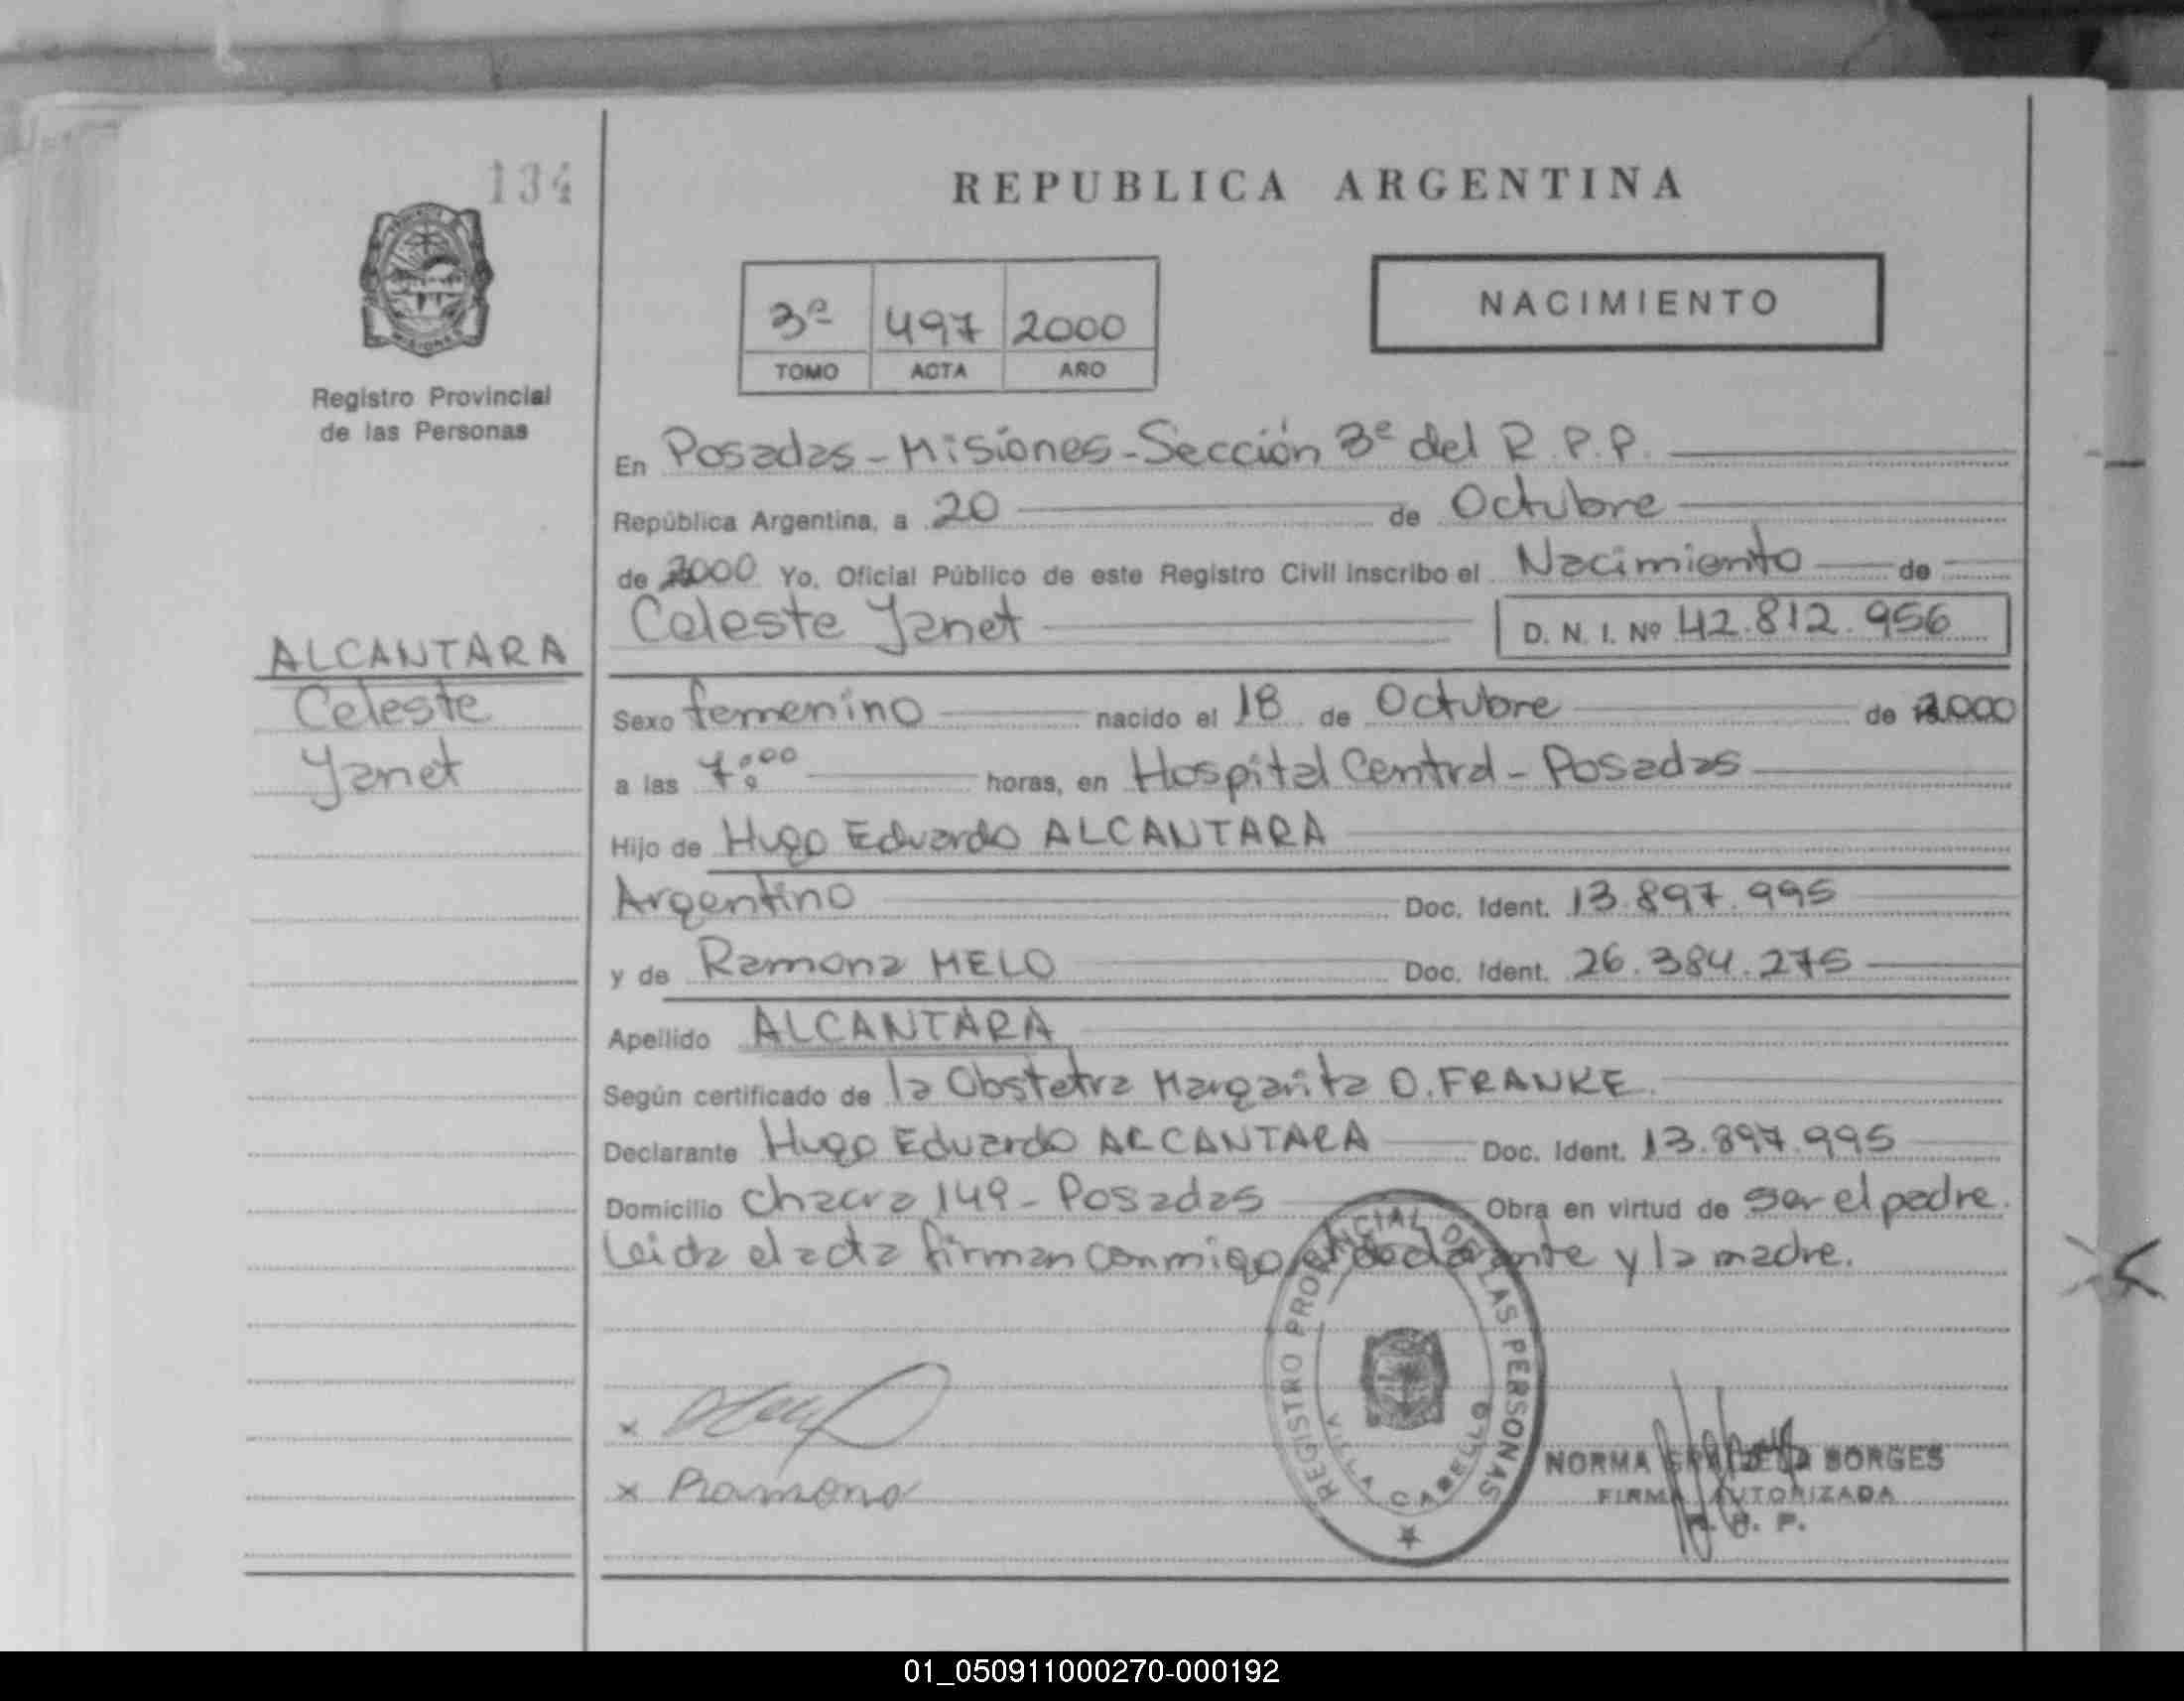 134
REPUBLICA ARGENTINA
3º 497 2000
TOMO ACTA AÑO
NACIMIENTO
Registro Provincial
de las Personas
En Posadas - Misiones - Sección 3º del R.P.P.
República Argentina, a 20 de Octubre
de 2000 Yo, Oficial Público de este Registro Civil Inscribo el Nacimiento de
Celeste Yanet D. N. I. Nº 42.812.956
ALCANTARA
Celeste
Yanet
Sexo femenino nacido el 18 de Octubre de 2.000
a las 7:00 horas, en Hospital Central - Posadas
Hijo de Hugo Eduardo ALCANTARA
Argentino Doc. Ident. 13.897.995
y de Ramona MELO Doc. Ident. 26.384.275
Apellido ALCANTARA
Según certificado de la Obstetra Margarita O. FRANKE.
Declarante Hugo Eduardo ALCANTARA Doc. Ident. 13.897.995
Domicilio Chacra 149 - Posadas Obra en virtud de ser el padre.
Leida el acta firman conmigo el declarante y la madre.
REGISTRO PROVINCIAL DE LAS PERSONAS
VILLA CABELLO
x
x Ramona
NORMA GRACIELA BORGES
FIRMA AUTORIZADA
R. P. P.
01_050911000270-000192